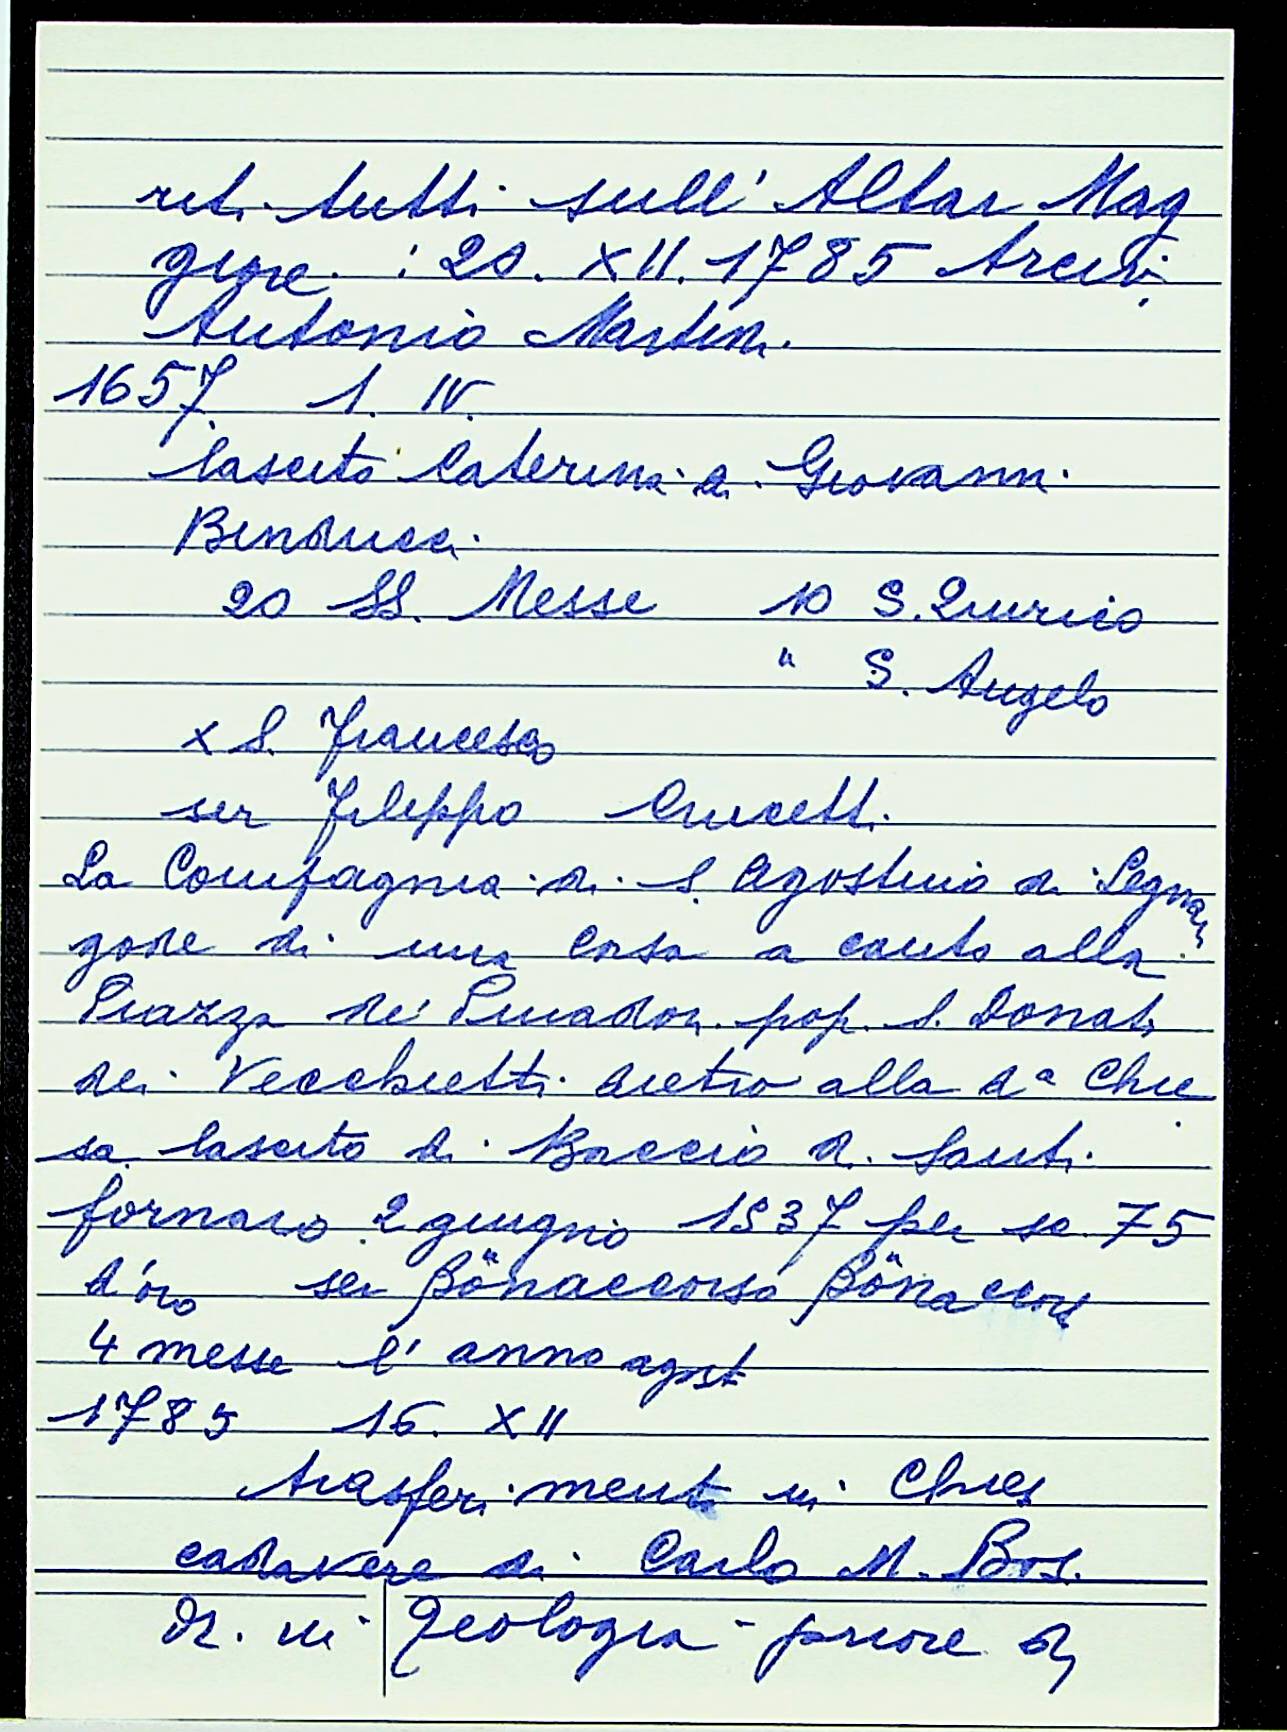 riti tutti sull' Altar Mag
giore : 20. XII. 1785 Arciv.
Antonio Martini.
1657 1. IV.
lascito Caterina di Giovanni
Benducci
20 SS. Messe 10 S. Quirico
" S. Angelo
x S. Francesco
ser Filippo Crucetti
La Compagnia di S. Agostino di Legnai
gode di una casa a canto alla
Piazza de' Pinadori pop. S. Donati
dei Vecchietti dietro alla da Chie
sa lascito di Baccio di Santi
fornaio 2 giugno 1537 per sc. 75
d'oro ser Bonaccorso Bonaccorsi
4 messe l'anno agost
1785 16. XII
trasferimento in Chies
cadavere di Carlo M. Bos.
Dr. in Teologia - priore di